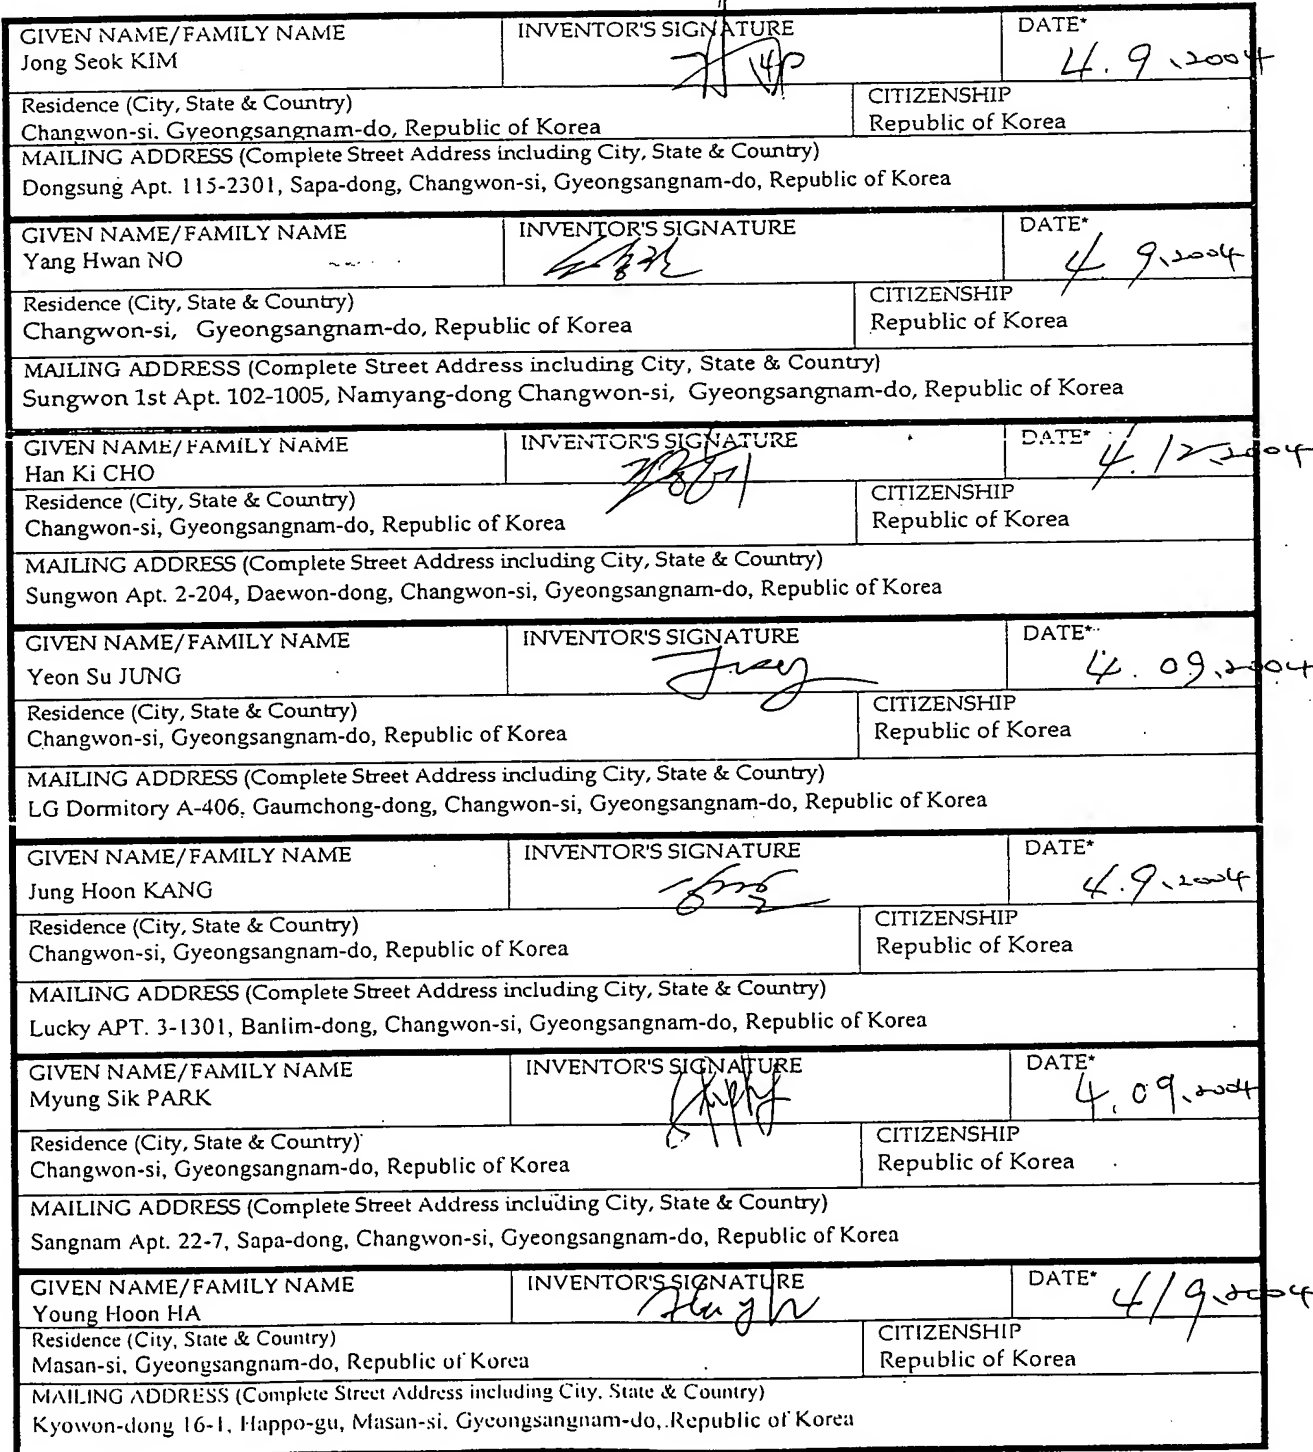 GIVEN NAME/FAMILY NAME INVENTOR'S SIGNATURE DATE*
Jong Seok KIM 4. 9, 2004
Residence (City, State & Country) CITIZENSHIP
Changwon-si, Gyeongsangnam-do, Republic of Korea Republic of Korea
MAILING ADDRESS (Complete Street Address including City, State & Country)
Dongsung Apt. 115-2301, Sapa-dong, Changwon-si, Gyeongsangnam-do, Republic of Korea
GIVEN NAME/FAMILY NAME INVENTOR'S SIGNATURE DATE*
Yang Hwan NO 4 9, 2004
Residence (City, State & Country) CITIZENSHIP
Changwon-si, Gyeongsangnam-do, Republic of Korea Republic of Korea
MAILING ADDRESS (Complete Street Address including City, State & Country)
Sungwon 1st Apt. 102-1005, Namyang-dong Changwon-si, Gyeongsangnam-do, Republic of Korea
GIVEN NAME/FAMILY NAME INVENTOR'S SIGNATURE DATE*
Han Ki CHO 4. 12, 2004
Residence (City, State & Country) CITIZENSHIP
Changwon-si, Gyeongsangnam-do, Republic of Korea Republic of Korea
MAILING ADDRESS (Complete Street Address including City, State & Country)
Sungwon Apt. 2-204, Daewon-dong, Changwon-si, Gyeongsangnam-do, Republic of Korea
GIVEN NAME/FAMILY NAME INVENTOR'S SIGNATURE DATE*
Yeon Su JUNG 4. 09, 2004
Residence (City, State & Country) CITIZENSHIP
Changwon-si, Gyeongsangnam-do, Republic of Korea Republic of Korea
MAILING ADDRESS (Complete Street Address including City, State & Country)
LG Dormitory A-406, Gaumchong-dong, Changwon-si, Gyeongsangnam-do, Republic of Korea
GIVEN NAME/FAMILY NAME INVENTOR'S SIGNATURE DATE*
Jung Hoon KANG 4. 9, 2004
Residence (City, State & Country) CITIZENSHIP
Changwon-si, Gyeongsangnam-do, Republic of Korea Republic of Korea
MAILING ADDRESS (Complete Street Address including City, State & Country)
Lucky APT. 3-1301, Banlim-dong, Changwon-si, Gyeongsangnam-do, Republic of Korea
GIVEN NAME/FAMILY NAME INVENTOR'S SIGNATURE DATE*
Myung Sik PARK 4. 09, 2004
Residence (City, State & Country) CITIZENSHIP
Changwon-si, Gyeongsangnam-do, Republic of Korea Republic of Korea
MAILING ADDRESS (Complete Street Address including City, State & Country)
Sangnam Apt. 22-7, Sapa-dong, Changwon-si, Gyeongsangnam-do, Republic of Korea
GIVEN NAME/FAMILY NAME INVENTOR'S SIGNATURE DATE*
Young Hoon HA 4/9, 2004
Residence (City, State & Country) CITIZENSHIP
Masan-si, Gyeongsangnam-do, Republic of Korea Republic of Korea
MAILING ADDRESS (Complete Street Address including City, State & Country)
Kyowon-dong 16-1, Happo-gu, Masan-si, Gyeongsangnam-do, Republic of Korea